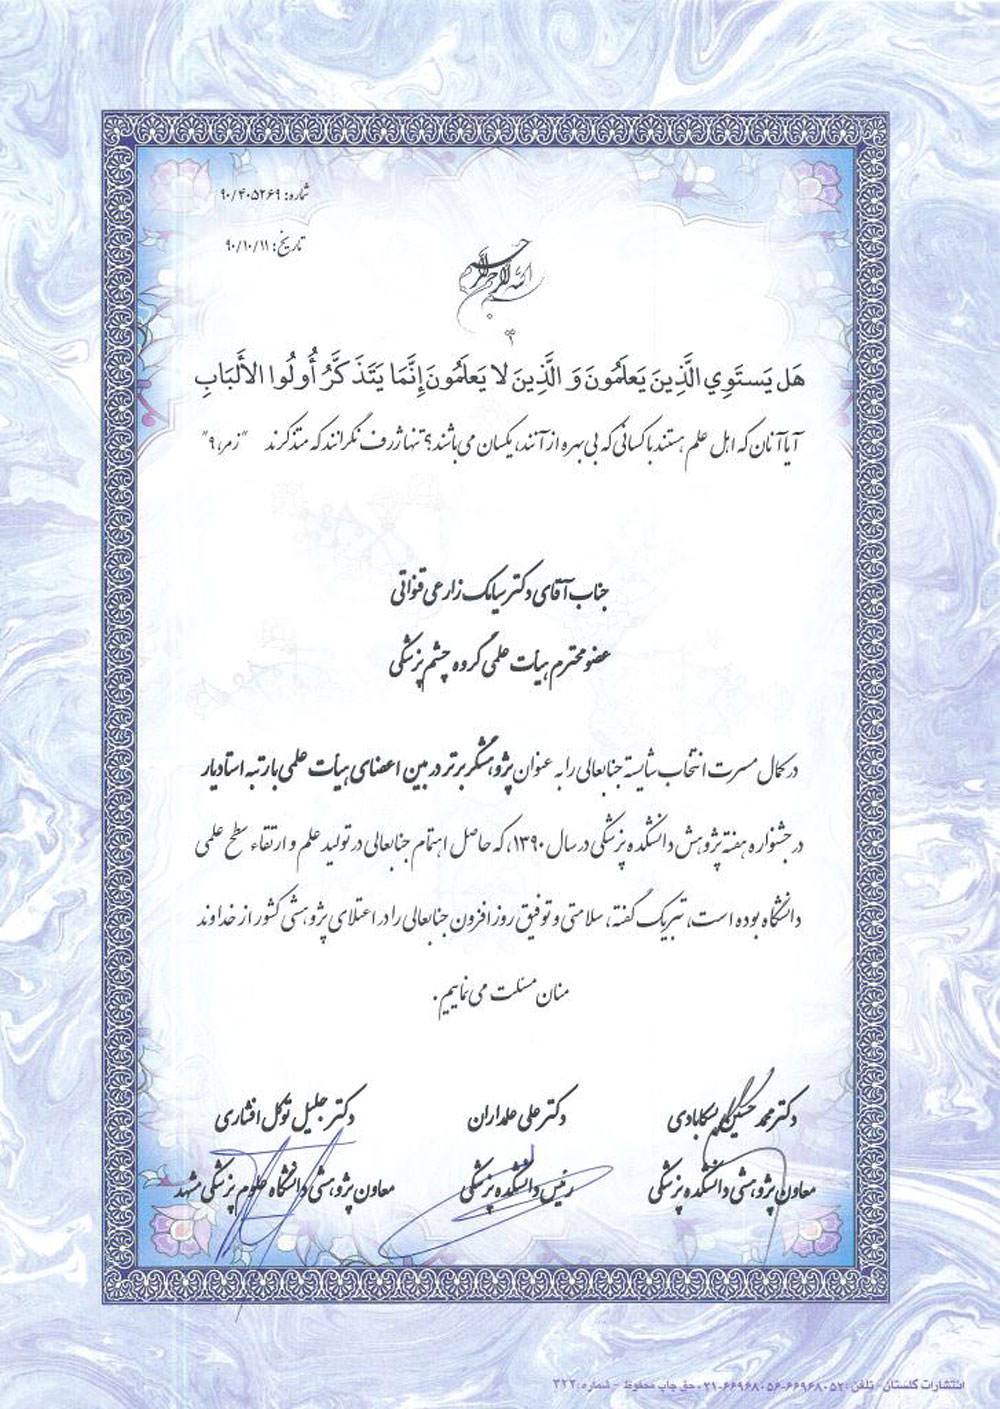 شماره: ۹۰/۴۰۵۲۶۹
تاریخ: ۹۰/۱۰/۱۱
بسم الله الرحمن الرحیم
هَل يَستَوِي الَّذِينَ يَعلَمُونَ وَ الَّذِينَ لا يَعلَمُونَ إِنَّمَا يَتَذَكَّرُ أُولُوا الألبَابِ
آیا آنان که اهل علم هستند با کسانی که بی بهره از آنند، یکسان می باشند؟ تنها ژرف نگرانند که متذکرند "زمر، ۹"
جناب آقای دکتر سیامک زارعی قنواتی
عضو محترم هیأت علمی گروه چشم پزشکی
در کمال مسرت انتخاب شایسته جنابعالی را به عنوان پژوهشگر برتر در بین اعضای هیأت علمی با رتبه استادیار
در جشنواره هفته پژوهش دانشکده پزشکی در سال ۱۳۹۰، که حاصل اهتمام جنابعالی در تولید علم و ارتقاء سطح علمی
دانشگاه بوده است، تبریک گفته، سلامتی و توفیق روز افزون جنابعالی را در اعتلای پژوهشی کشور از خداوند
منان مسئلت می نماییم.
دکتر محمد دکتر علی علمداران دکتر جلیل توکل افشاری
معاون پژوهشی دانشکده پزشکی رئیس دانشکده پزشکی معاون پژوهشی دانشگاه علوم پزشکی مشهد
انتشارات گلستان - تلفن: ۶۶۹۶۸۰۵۲-۶۶۹۶۸۰۵۶-۰۲۱ حق چاپ محفوظ - شماره: ۳۲۲